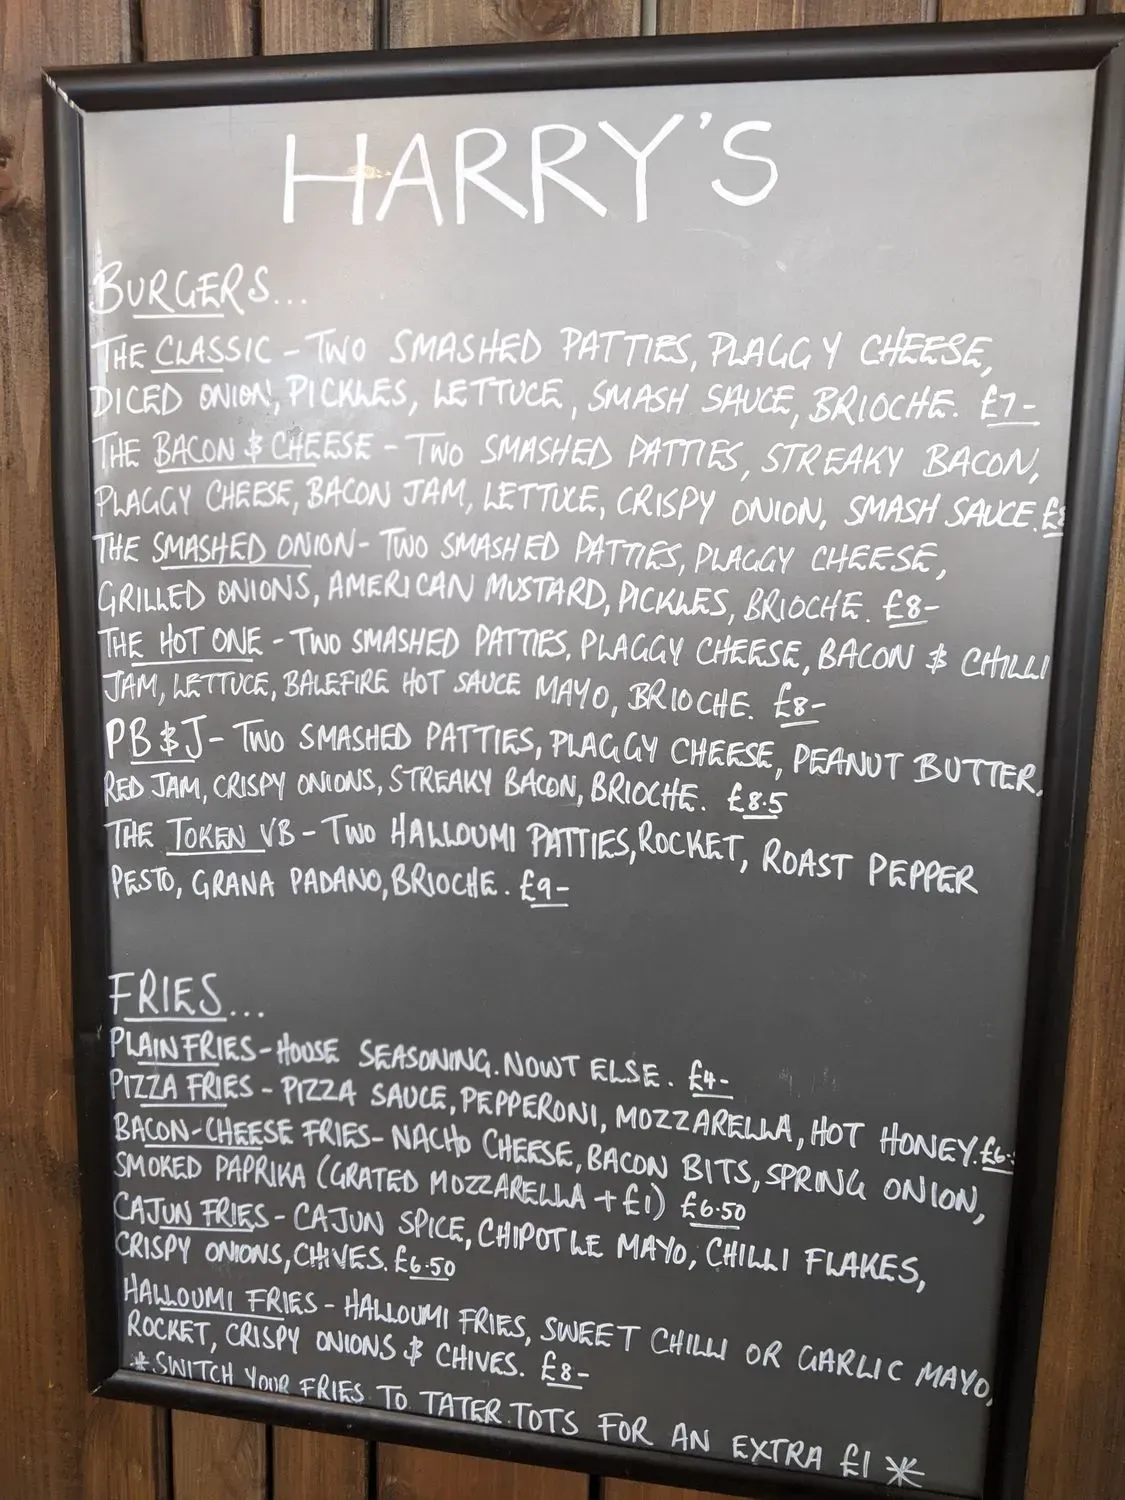 HARRY'S
BURGERS...
THE CLASSIC - TWO SMASHED PATTIES, PLAGGY CHEESE,
DICED ONION, PICKLES, LETTUCE, SMASH SAUCE, BRIOCHE. £7-
THE BACON & CHEESE - TWO SMASHED PATTIES, STREAKY BACON,
PLAGGY CHEESE, BACON JAM, LETTUCE, CRISPY ONION, SMASH SAUCE.
THE SMASHED ONION - TWO SMASHED PATTIES, PLAGGY CHEESE,
GRILLED ONIONS, AMERICAN MUSTARD, PICKLES, BRIOCHE. £8-
THE HOT ONE - TWO SMASHED PATTIES, PLAGGY CHEESE, BACON & CHILLI
JAM, LETTUCE, BALEFIRE HOT SAUCE MAYO, BRIOCHE. £8-
PB&J - TWO SMASHED PATTIES, PLAGGY CHEESE, PEANUT BUTTER,
RED JAM, CRISPY ONIONS, STREAKY BACON, BRIOCHE. £8.5
THE TOKEN VB - TWO HALLOUMI PATTIES, ROCKET, ROAST PEPPER
PESTO, GRANA PADANO, BRIOCHE. £9-
FRIES...
PLAIN FRIES - HOUSE SEASONING. NOWT ELSE. £4-
PIZZA FRIES - PIZZA SAUCE, PEPPERONI, MOZZARELLA, HOT HONEY.
BACON-CHEESE FRIES - NACHO CHEESE, BACON BITS, SPRING ONION,
SMOKED PAPRIKA (GRATED MOZZARELLA + £1) £6.50
CAJUN FRIES - CAJUN SPICE, CHIPOTLE MAYO, CHILLI FLAKES,
CRISPY ONIONS, CHIVES. £6.50
HALLOUMI FRIES - HALLOUMI FRIES, SWEET CHILLI OR GARLIC MAYO,
ROCKET, CRISPY ONIONS & CHIVES. £8-
*SWITCH YOUR FRIES TO TATER TOTS FOR AN EXTRA £1*